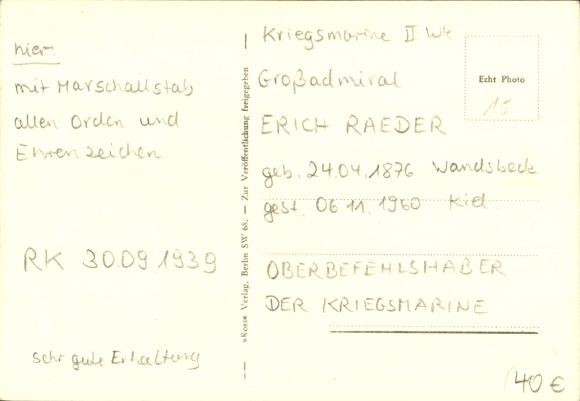 hier:
mit Marschallstab
allen Orden und
Ehrenzeichen
RK 30.09.1939
sehr gute Erhaltung
»Ross« Verlag, Berlin SW 68. — Zur Veröffentlichung freigegeben —
Kriegsmarine II Wk
Großadmiral
ERICH RAEDER
geb. 24.04.1876 Wandsbeck
gest. 06.11.1960 Kiel.
OBERBEFEHLSHABER
DER KRIEGSMARINE
Echt Photo
15
40 €